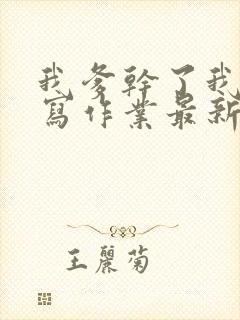 我爹幹了我
寫作業最新
王麗菊